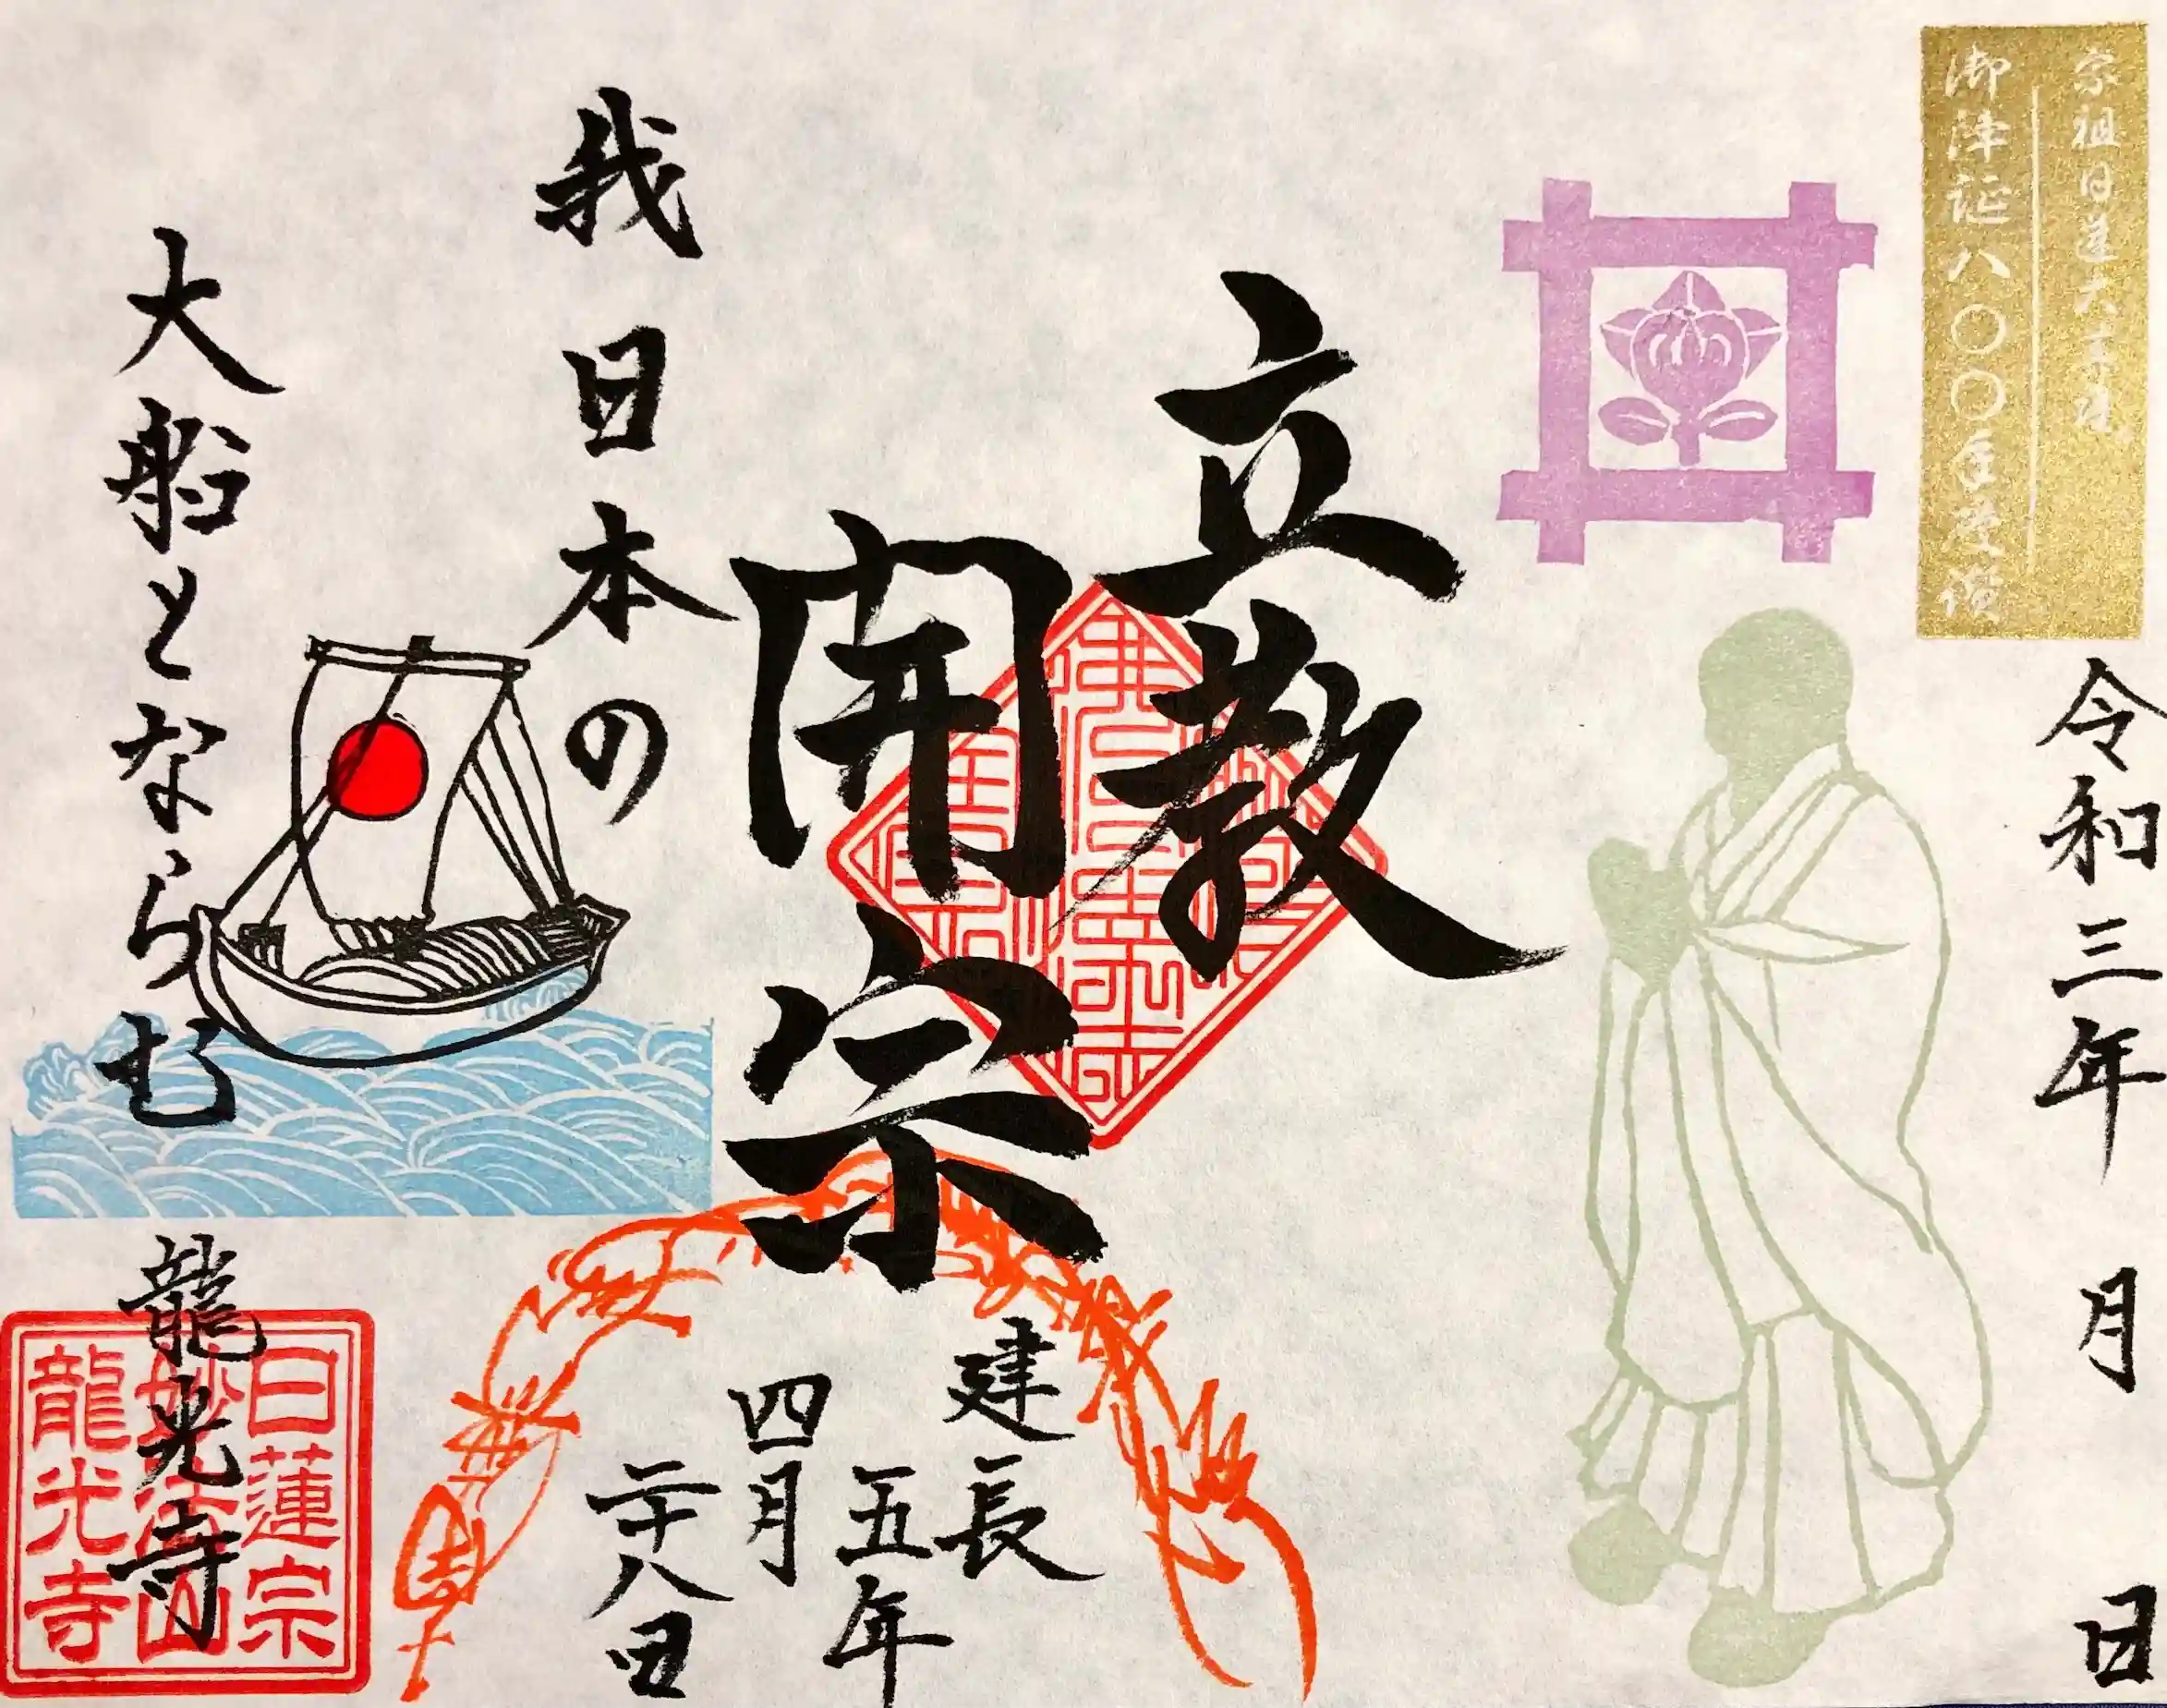 宗祖日蓮大菩薩
御降誕八〇〇年慶讃
令和三年 月 日
立教
開宗
建長
五年
四月
二十八日
我日本の
大船とならむ
龍光寺
日蓮宗
妙法山
龍光寺